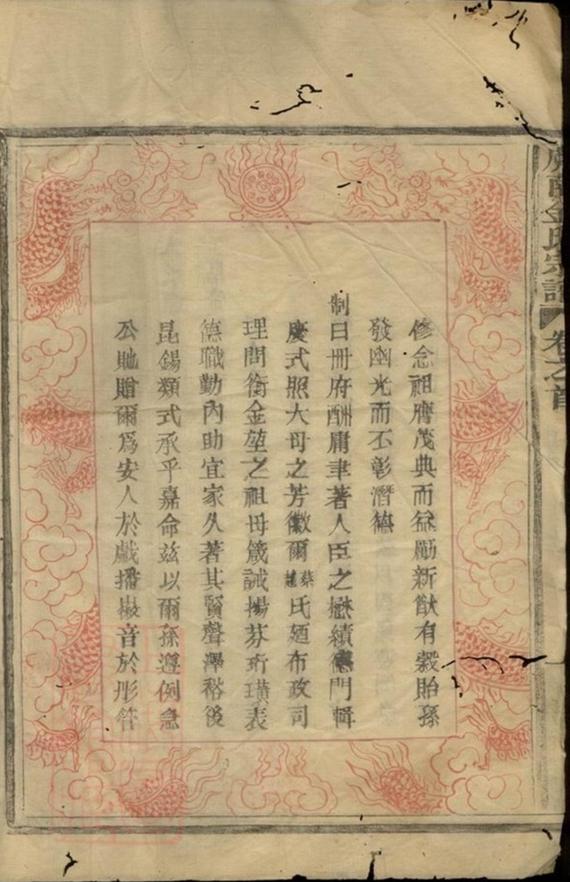 修念祖膺茂典而益勵新猷有穀貽孫
發幽光而丕彰潛德
制曰冊府酬庸聿著人臣之懋績德門輯
慶式照大母之芳徽爾蔡趙氏廼布政司
理問銜金堃之祖母箴誡揚芬珩璜表
德職勤內助宜家久著其賢聲澤裕後
昆錫類式承乎嘉命茲以爾孫遵例急
公貤贈爾爲安人於戲播徽音於彤管
金氏宗譜
卷之首